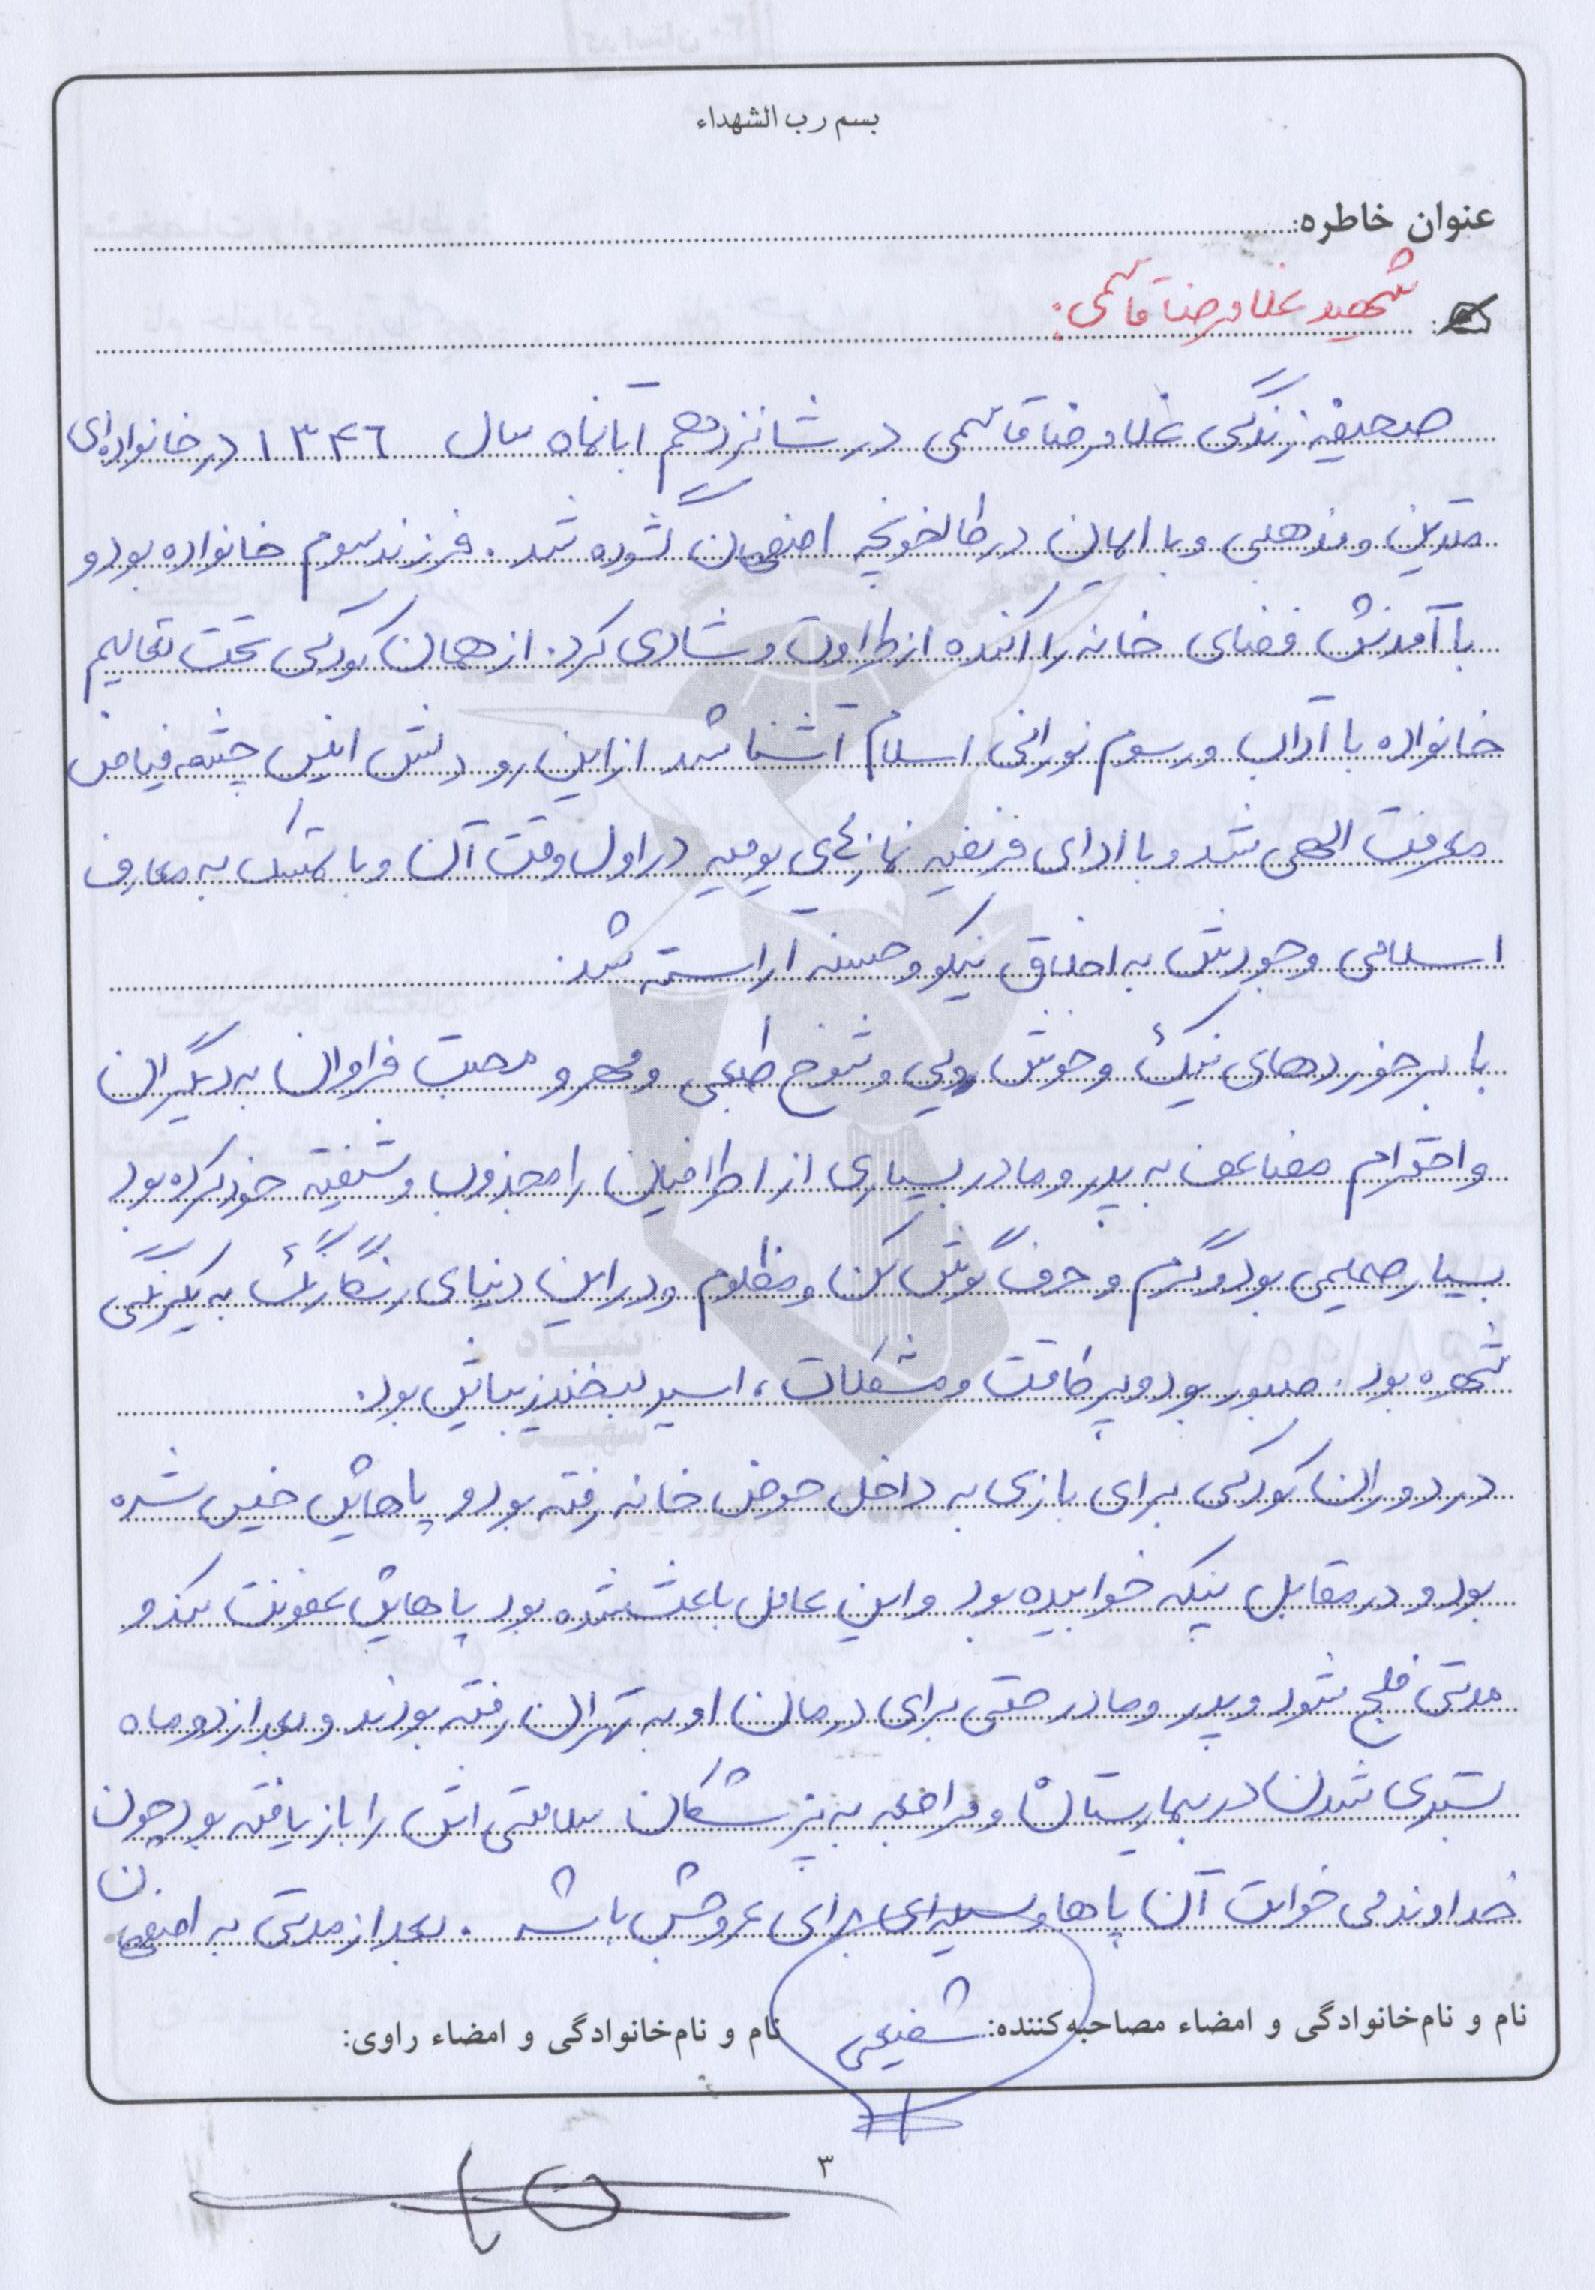 بسم رب الشهداء
عنوان خاطره:
شهید غلامرضا قاسمی:
صحیفه زندگی غلامرضا قاسمی در شانزدهم آبانماه سال ۱۳۴۶ در خانواده‌ای
متدین و مذهبی و با ایمان در طالخونچه اصفهان گشوده شد. فرزند سوم خانواده بود و
با آمدنش فضای خانه را آکنده از طراوت و شادی کرد. از همان کودکی تحت تعالیم
خانواده با آداب و رسوم نورانی اسلام آشنا شد از این رو دلش انیس چشمه فیاض
معرفت الهی شد و با ادای فریضه نمازهای یومیه در اول وقت آن و با تمسک به معارف
اسلامی وجودش به اخلاق نیکو و حسنه آراسته شد.
با برخوردهای نیک و خوش رویی و شوخ طبعی و مهر و محبت فراوان به دیگران
و احترام مضاعف به پدر و مادر بسیاری از اطرافیان را مجذوب و شیفته خود کرده بود
بسیار صمیمی بود و گرم و حرف گوش کن و مظلوم و در این دنیای رنگارنگ به یکرنگی
شهره بود. صبور بود و پر طاقت و مشکلات، اسیر لبخند زیبایش بود.
در دوران کودکی برای بازی به داخل حوض خانه رفته بود و پاهایش خیس شده
بود و در مقابل پنکه خوابیده بود و این عامل باعث شده بود پاهایش عفونت کند و
مدتی فلج شود و پدر و مادر حتی برای درمان او به تهران رفته بودند و بعد از دو ماه
بستری شدن در بیمارستان و مراجعه به پزشکان سلامتی اش را بازیافته بود چون
خداوند می خواست آن پاها وسیله‌ای برای عروجش باشد. بعد از مدتی به اصفهان
نام و نام‌خانوادگی و امضاء مصاحبه‌کننده: شفیعی نام و نام‌خانوادگی و امضاء راوی:
۳